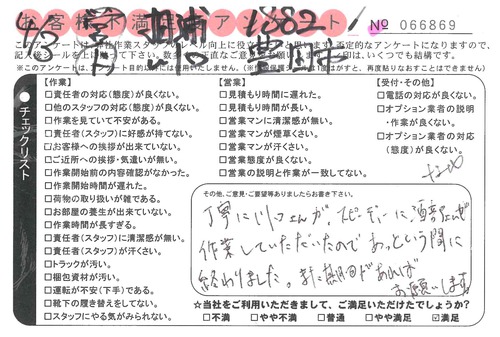 お客様不満足アンケート
No 066869
このアンケートは、弊社作業スタッフのレベル向上に役立
否定的なアンケートになりますので、
記入後シールを
印は、いくつでも結構です。
※このアンケートは、
目的以外には使用いたしません。
再度貼りなおすことはできません)
チェックリスト
【作業】
□責任者の対応(態度)が良くない。
□他のスタッフの対応(態度)が良くない。
□作業を見ていて不安がある。
□責任者(スタッフ)に好感が持てない。
□お客様への挨拶が出来ていない。
□ご近所への挨拶・気遣いが無い。
□作業開始前の内容確認がなかった。
□作業開始時間が遅れた。
□荷物の取り扱いが雑である。
□お部屋の養生が出来ていない。
□作業時間が長すぎる。
□責任者(スタッフ)に清潔感が無い。
□責任者(スタッフ)が汗くさい。
□トラックが汚い。
□梱包資材が汚い。
□運転が不安(下手)である。
□靴下の履き替えをしてない。
□スタッフにやる気がみられない。
【営業】
□見積もり時間に遅れた。
□見積もり時間が長い。
□営業マンに清潔感が無い。
□営業マンが煙草くさい。
□営業マンが汗くさい。
□営業態度が良くない。
□営業の説明と作業が一致してない。
【受付・その他】
□電話の対応が良くない。
□オプション業者の説明
・作業が良くない。
□オプション業者の対応
(態度)が良くない。
その他、ご意見・ご要望等ありましたらお書き下さい。
丁寧に
スピーディーに
作業していただいたので あっという間に
終わりました。また機会があれば
お願いします
☆当社をご利用いただきまして、ご満足いただけたでしょうか?
□不満 □やや不満 □普通 □やや満足 ☑満足